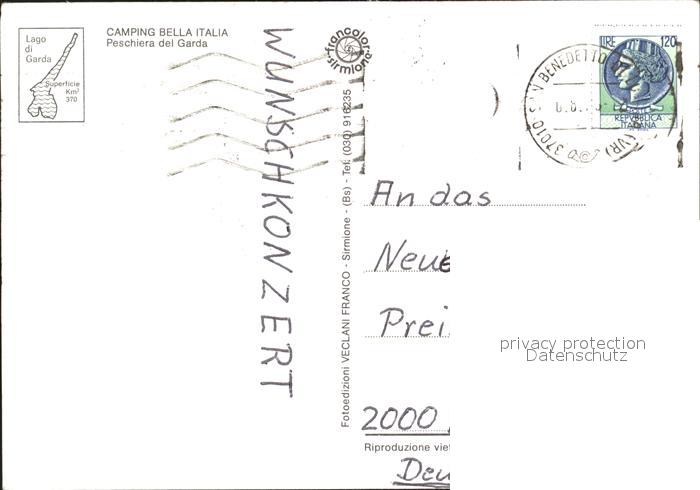 Lago
di
Garda
Superficie
Km²
370
CAMPING BELLA ITALIA
Peschiera del Garda
WUNSCHKONZERT
francolor
sirmione
Fotoedizioni VECLANI FRANCO - Sirmione - (Bs) - Tel. (030) 916235
37010 SAN BENEDETTO
(VR)
LIRE 120
REPVBBLICA
ITALIANA
An das
Neue
Prei
privacy protection
Datenschutz
2000
Riproduzione viet
Deu